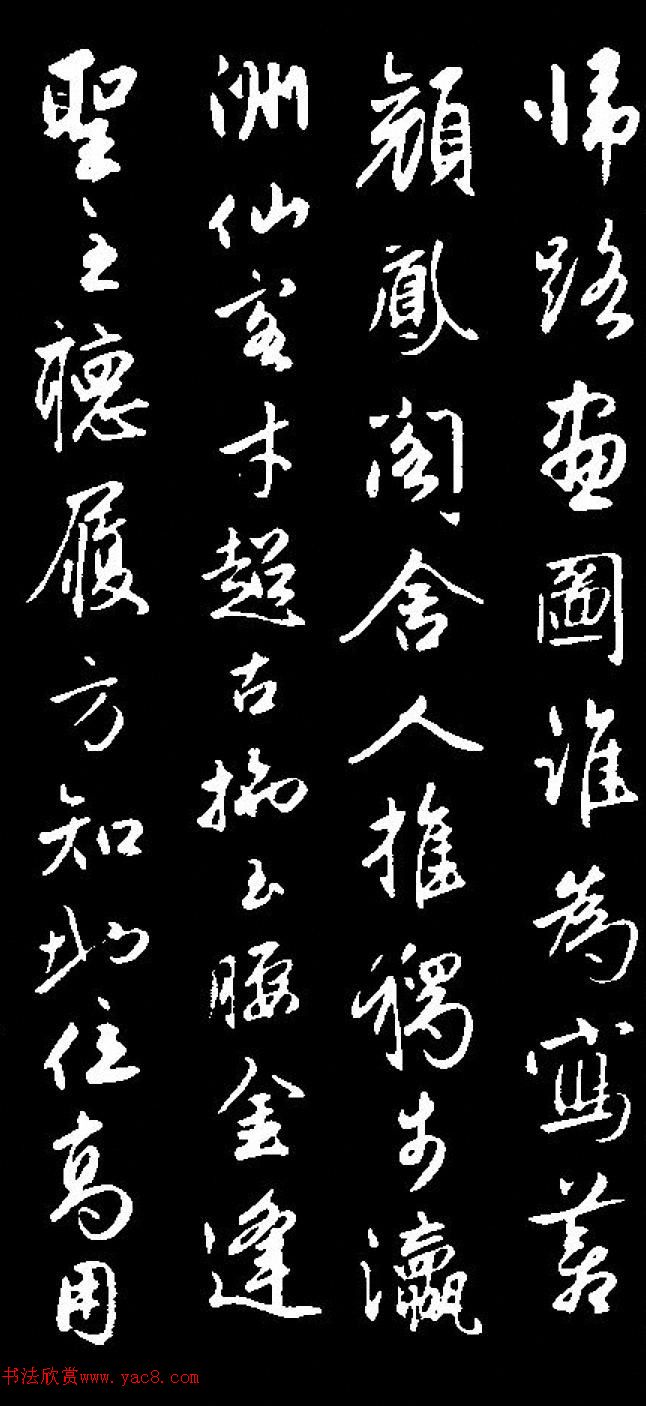 歸路畫圖誰為寫蒼
顏鳳閣舍人推獨步瀛
洲仙客才超古搊玉腰金逢
聖主聽履方知地位高用
书法欣赏www.yac8.com